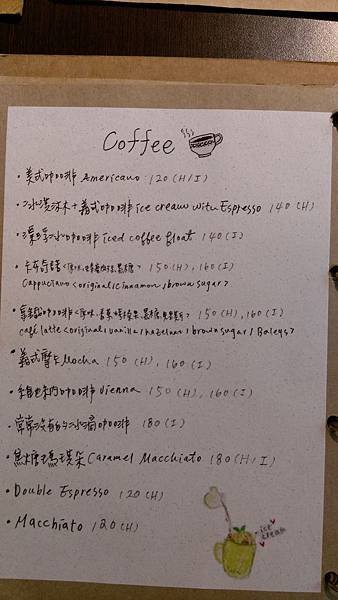 Coffee
・美式咖啡 Americano 120 (H/I)
・冰淇淋+義式咖啡 ice cream with Espresso 140 (H)
・漂浮冰咖啡 iced coffee float 140 (I)
・卡布奇諾<原味,肉桂,黑糖> 150 (H), 160 (I)
Cappuccinno <original/cinnamon/brown sugar>
・拿鐵咖啡<原味,香草,榛果,黑糖,貝里斯> 150 (H), 160 (I)
café latte <original/vanilla/hazelnut/brown sugar/Baleys>
・義式摩卡 Mocha 150 (H), 160 (I)
・維也納咖啡 Vienna 150 (H), 160 (I)
・常常沒有的冰滴咖啡 180 (I)
・焦糖瑪琪朵 Caramel Macchiato 180 (H/I)
・Double Espresso 120 (H)
・Macchiato 120 (H)
ice cream